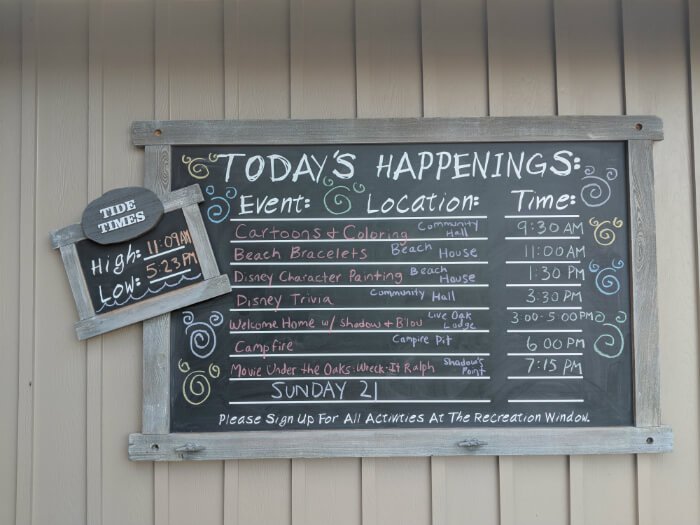 TODAY'S HAPPENINGS:
Event: Location: Time:
Cartoons & Coloring Community Hall 9:30 AM
Beach Bracelets Beach House 11:00 AM
Disney Character Painting Beach House 1:30 PM
Disney Trivia Community Hall 3:30 PM
Welcome Home w/ Shadow & Blou Live Oak Lodge 3:00-5:00 PM
Campfire Campire Pit 6:00 PM
Movie Under the Oaks: Wreck-It Ralph Shadow's Point 7:15 PM
SUNDAY 21
Please Sign Up For All Activities At The Recreation Window.
TIDE
TIMES
High: 11:09 AM
Low: 5:23 PM